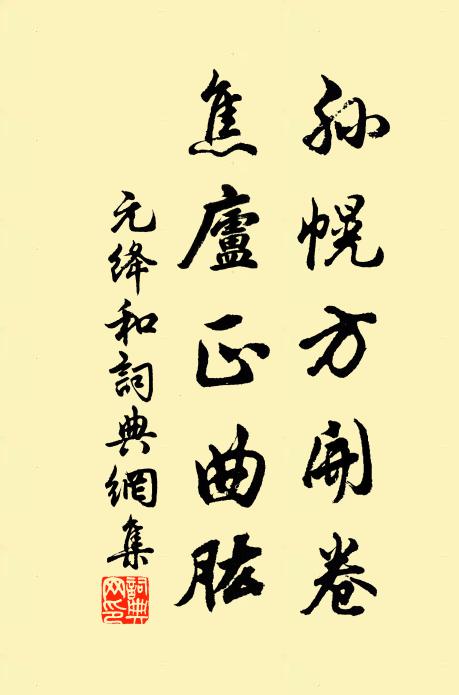 孙幌方開卷
焦廬正曲肱
元绛和詞典網集
詞典网印